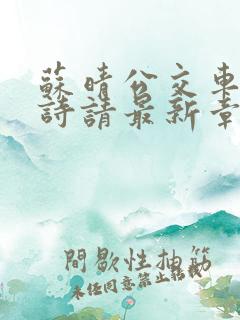 蘇晴公交車
詩請最新章
間歇性抽筋
未經同意禁止轉載